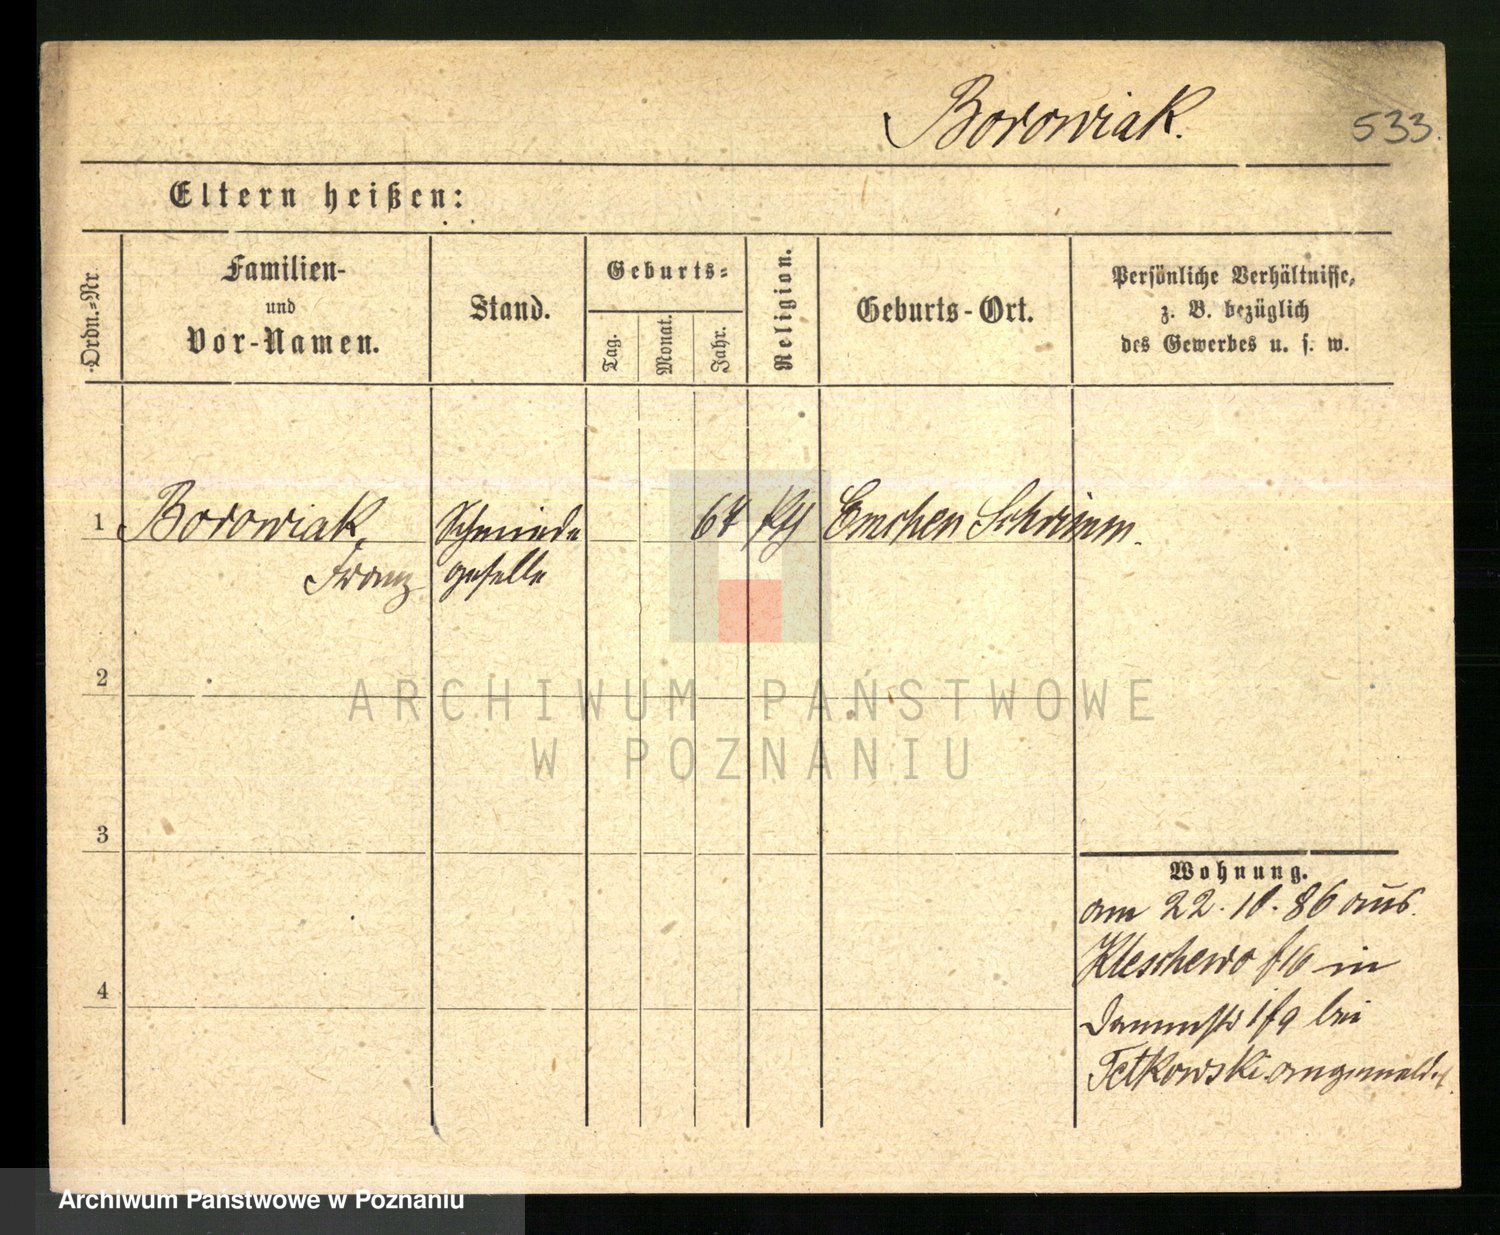 Borowiak.
533.
Eltern heißen:
Ordn.-Nr.
Familien-
und
Vor-Namen.
Stand.
Geburts-
Tag.
Monat.
Jahr.
Religion.
Geburts-Ort.
Persönliche Verhältnisse,
z. B. bezüglich
des Gewerbes u. s. w.
1 Borowiak, Schmiede 67 kth Emchen Schrimm.
Franz geselle
2
ARCHIWUM PAŃSTWOWE
W POZNANIU
3
Wohnung.
am 22. 10. 86 aus
Kleschewo in
4
Dammstr bei
Tetkowski angemeldet
Archiwum Państwowe w Poznaniu